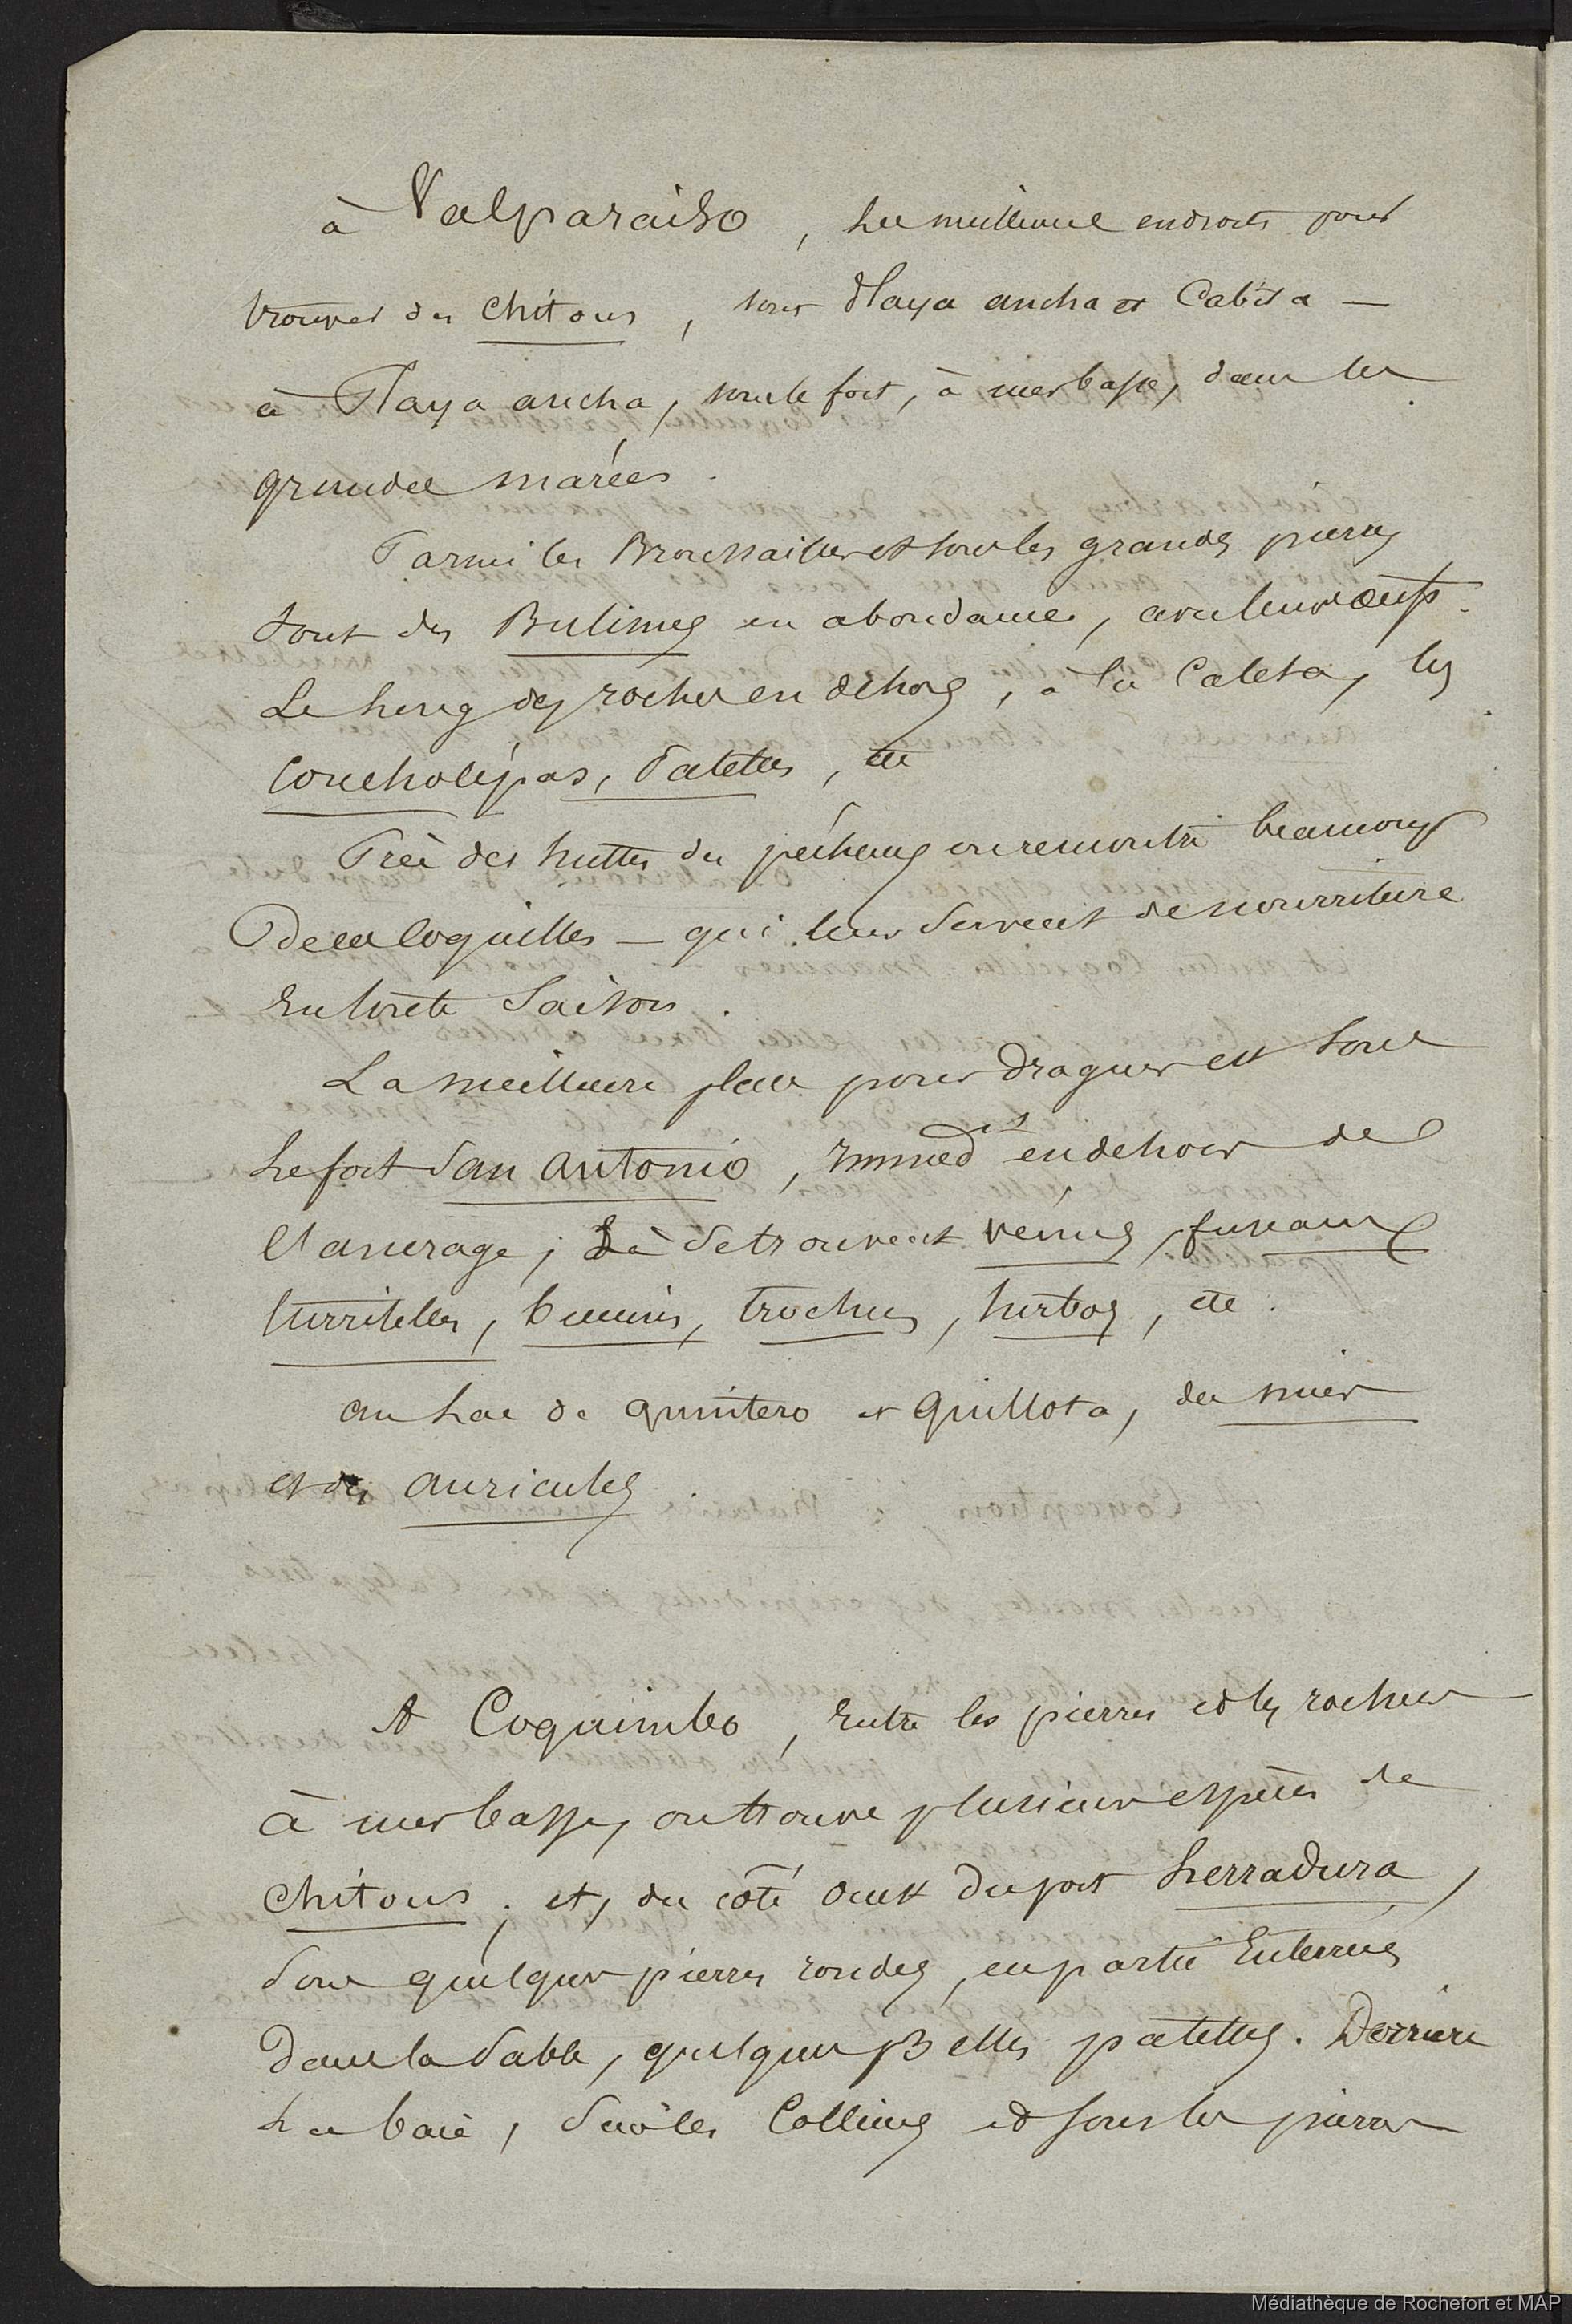 à Valparaiso, les meilleurs endroits pour
trouver des Chitons, sont Playa ancha et Cabita —
à Playa ancha, sous le fort, à mer basse, dans les
grandes marées.
Parmi les Broussailles et sous les grandes pierres
sont des Bulimes en abondance, avec leurs œufs.
Le long des rochers en dehors, à la Caleta, les
Concholépas, Patelles, etc
Près des huttes des pêcheurs on rencontre beaucoup
de ces Coquilles — qui leur servent de nourriture
en toute saison.
La meilleure place pour draguer est sous
le fort San Antonio, immédt en dehors de
l'ancrage; Là se trouvent vénus, fuseaux
turritelles, buccins, trochus, turbos, etc.
au Lac de quintero et Quillota, des
et des auricules.
A Coquimbo, entre les pierres et les rochers
à mer basse, on trouve plusieurs espèces de
Chitons; et, du côté ouest du port herradura,
sous quelques pierres rondes, en partie enterrées
dans la sable, quelques Belles patelles. Derrière
La baie, sur les Collines et sous les pierres
Médiathèque de Rochefort et MAP